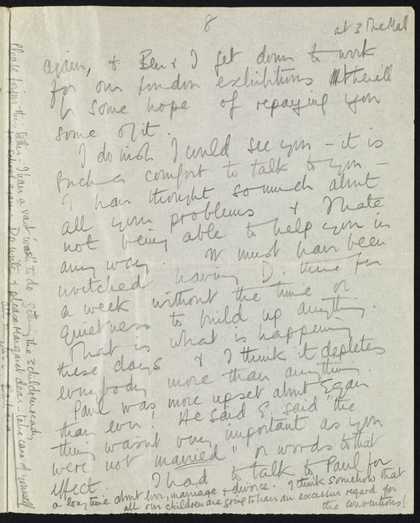 8
at 3 The Mall
again, & Ben & I get down to work
for our London exhibitions & there'll
be some hope of repaying you
some of it.
I do wish I could see you – it is
such a comfort to talk to you –
I have thought so much about
all your problems & I hate
not being able to help you in
any way. It must have been
wretched having D. there for
a week without the time or
quietness to build up anything.
That is what is happening
these days & I think it depletes
everybody more than anything.
Paul was more upset about
than ever! He said E. said "the
thing wasn't very important as you
were not married" or words to that
effect. I had to talk to Paul for
a long time about love, marriage & divorce. I think somehow that
all our children are going to have an excessive regard for
the conventions!
Please forgive this letter. I have a vast 'wash' to do & getting the 3 children ready
Do write & please Margaret dear – take care of yourself